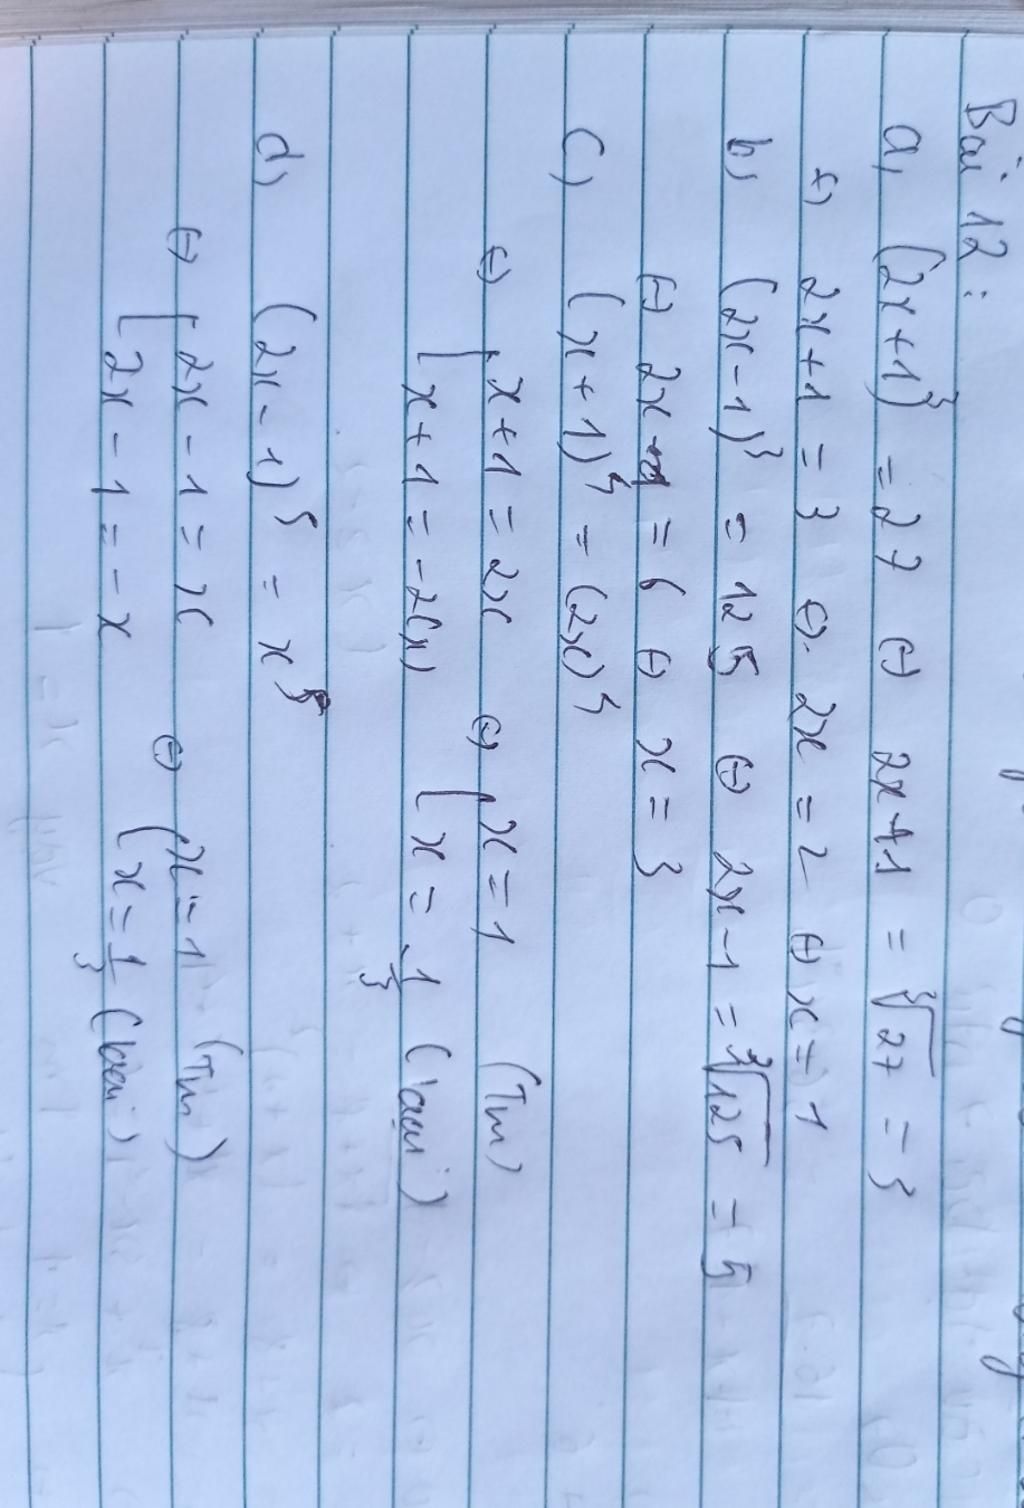 Bài 12:
a, (2x+1)³ = 27 ⇔ 2x+1 = ∛27 = 3
⇔ 2x+1 = 3 ⇔ 2x = 2 ⇔ x = 1
b, (2x-1)³ = 125 ⇔ 2x-1 = ∛125 = 5
⇔ 2x = 6 ⇔ x = 3
c, (x+1)³ = (2x)³
⇔ [ x+1 = 2x ⇔ [ x = 1 (Tm)
[ x+1 = -2(x) [ x = -1/3 (loại)
d, (2x-1)⁵ = x⁵
⇔ [ 2x-1 = x ⇔ [ x = 1 (Tm)
[ 2x-1 = -x [ x = 1/3 (loại)